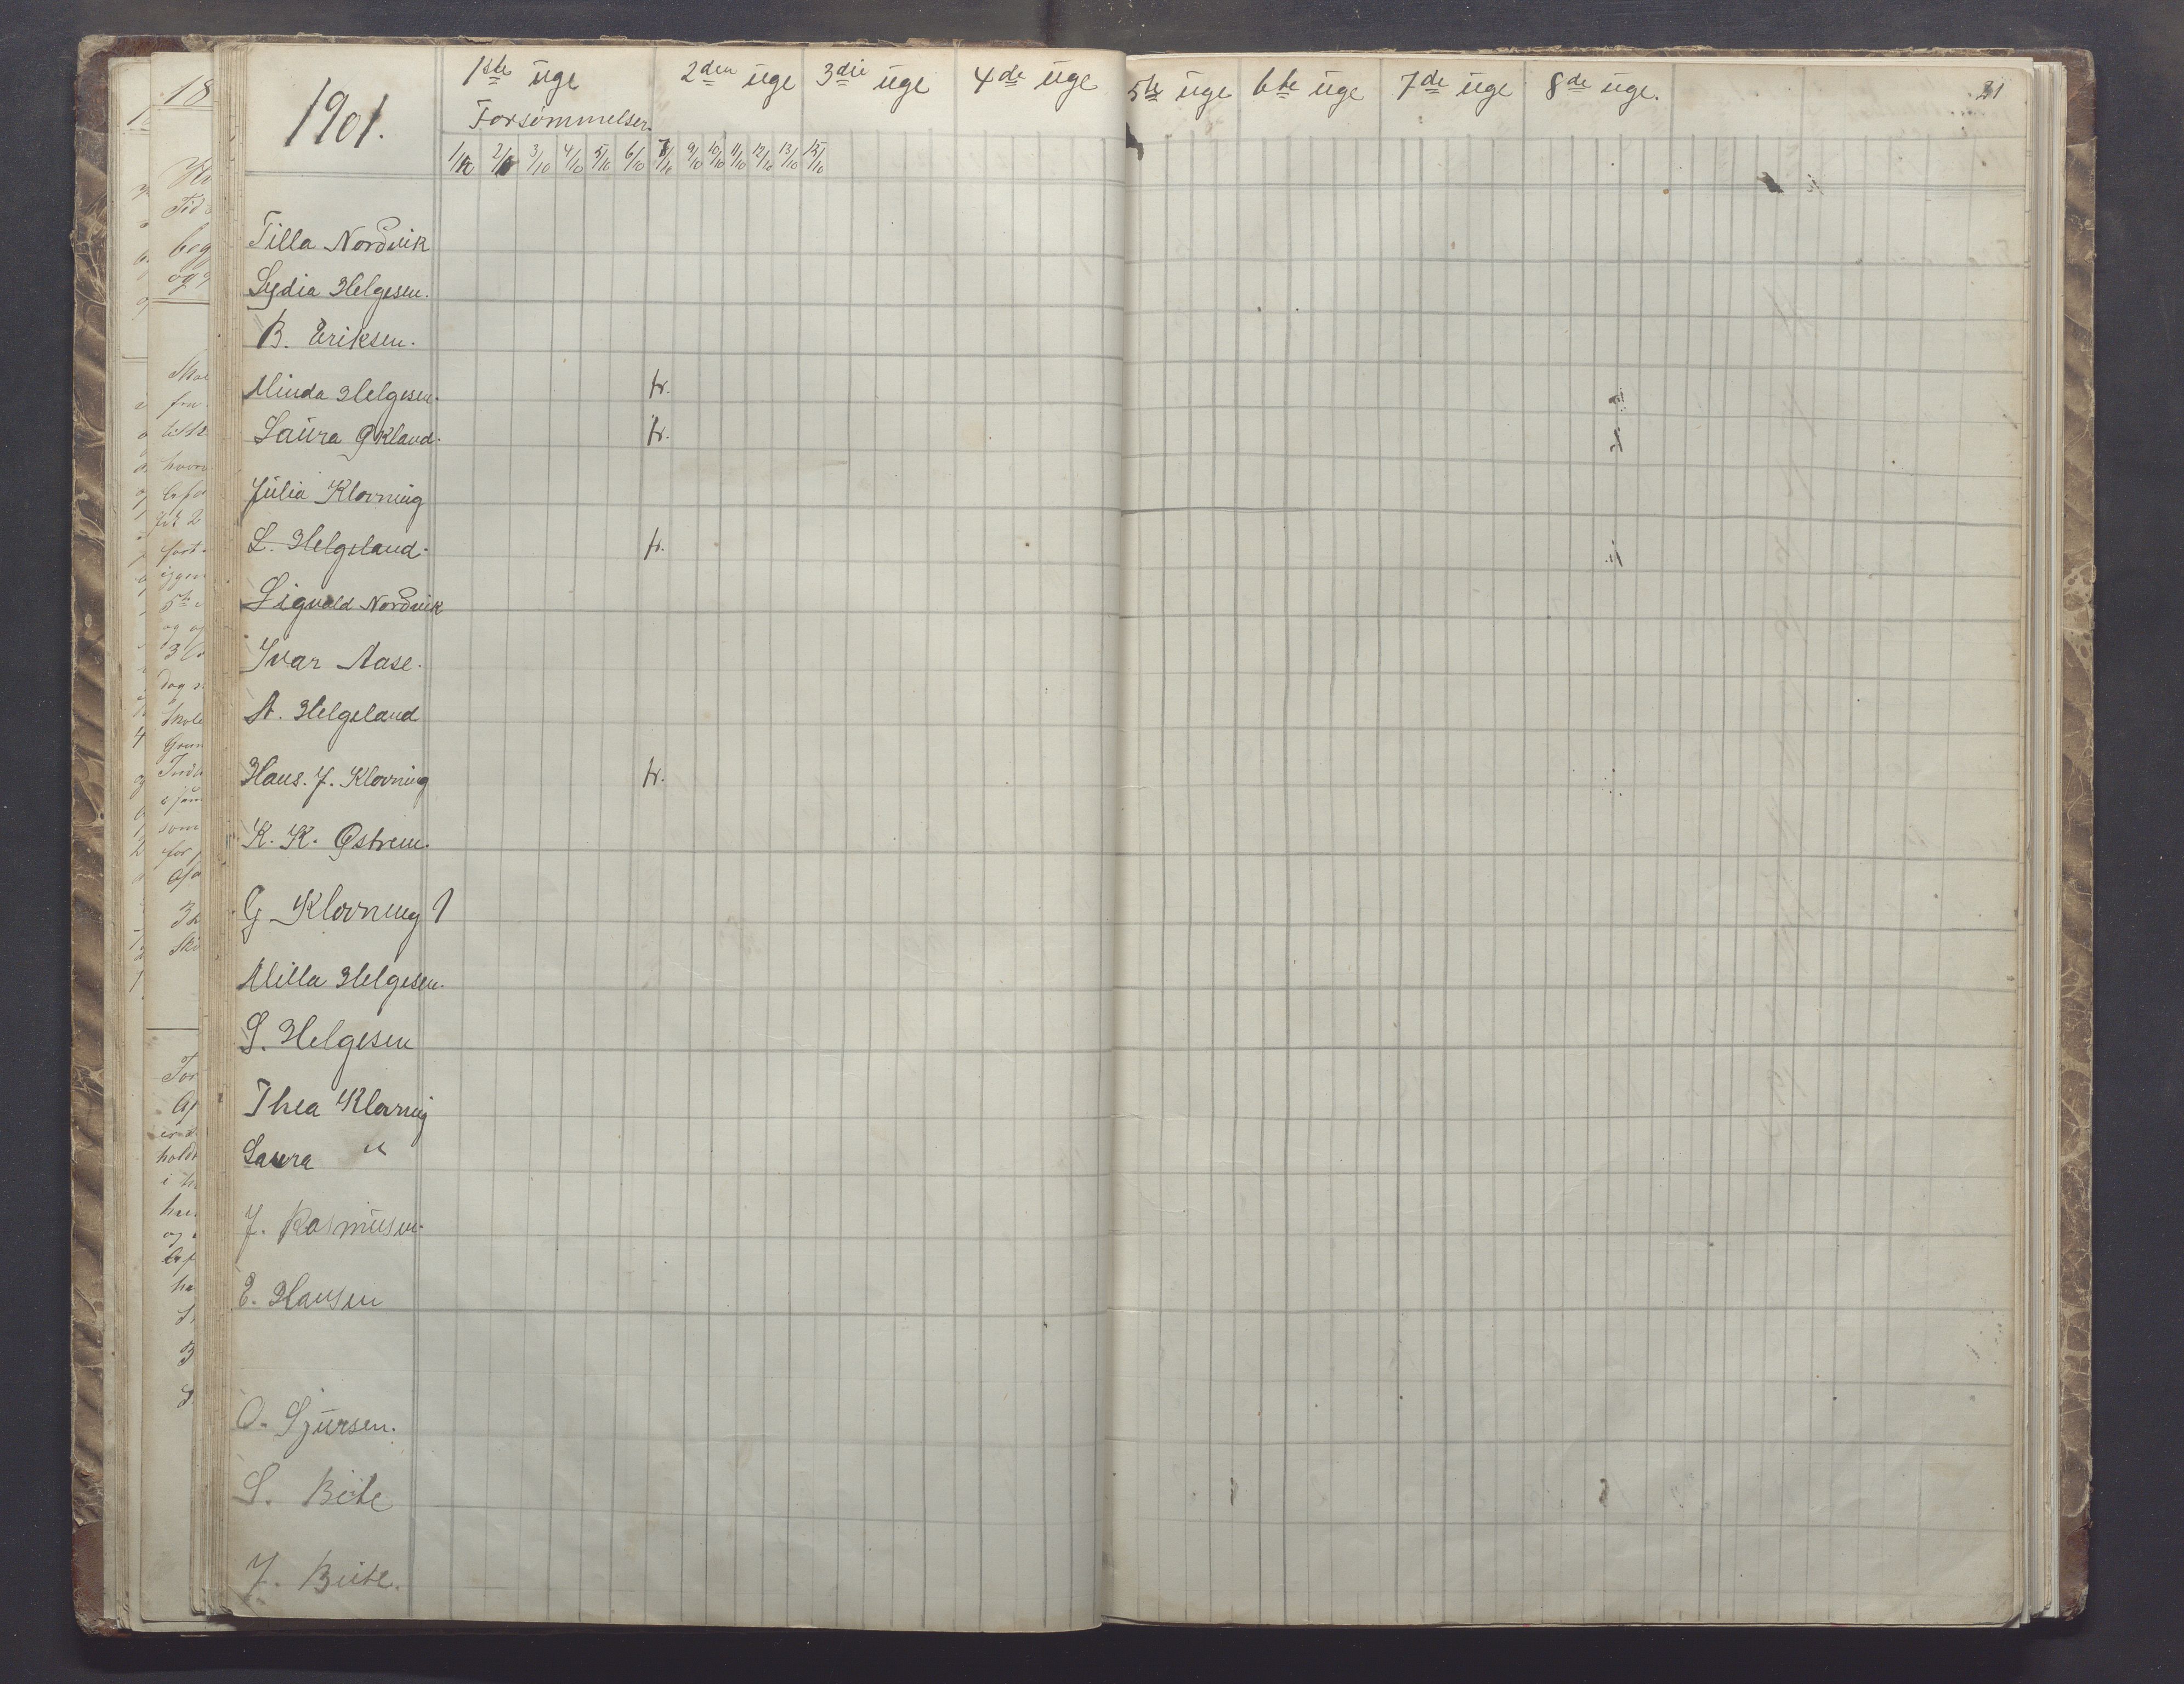 1901.
1ste uge 2den uge 3die uge 4de uge 5te uge 6te uge 7de uge 8de uge. 21
Forsömmelser
1/10 2/10 3/10 4/10 5/10 6/10 7/10 9/10 10/10 11/10 12/10 13/10 15/10
Tilla Nordvik
Lydia Helgesen.
B. Eriksen.
Minda Helgesen. h.
Laura Økland. h.
Julia Klovning
L. Helgeland. h.
Sigvald Nordvik
Ivar Aase.
A. Helgeland
Hans. J. Klovning h.
K. K. Østrem.
G Klovning 1
Milla Helgesen.
S. Helgesen
Thea Klovning
Laura "
J. Rasmusen.
E. Hansen
O. Sjursen.
S. Bite
J. Bite.
18